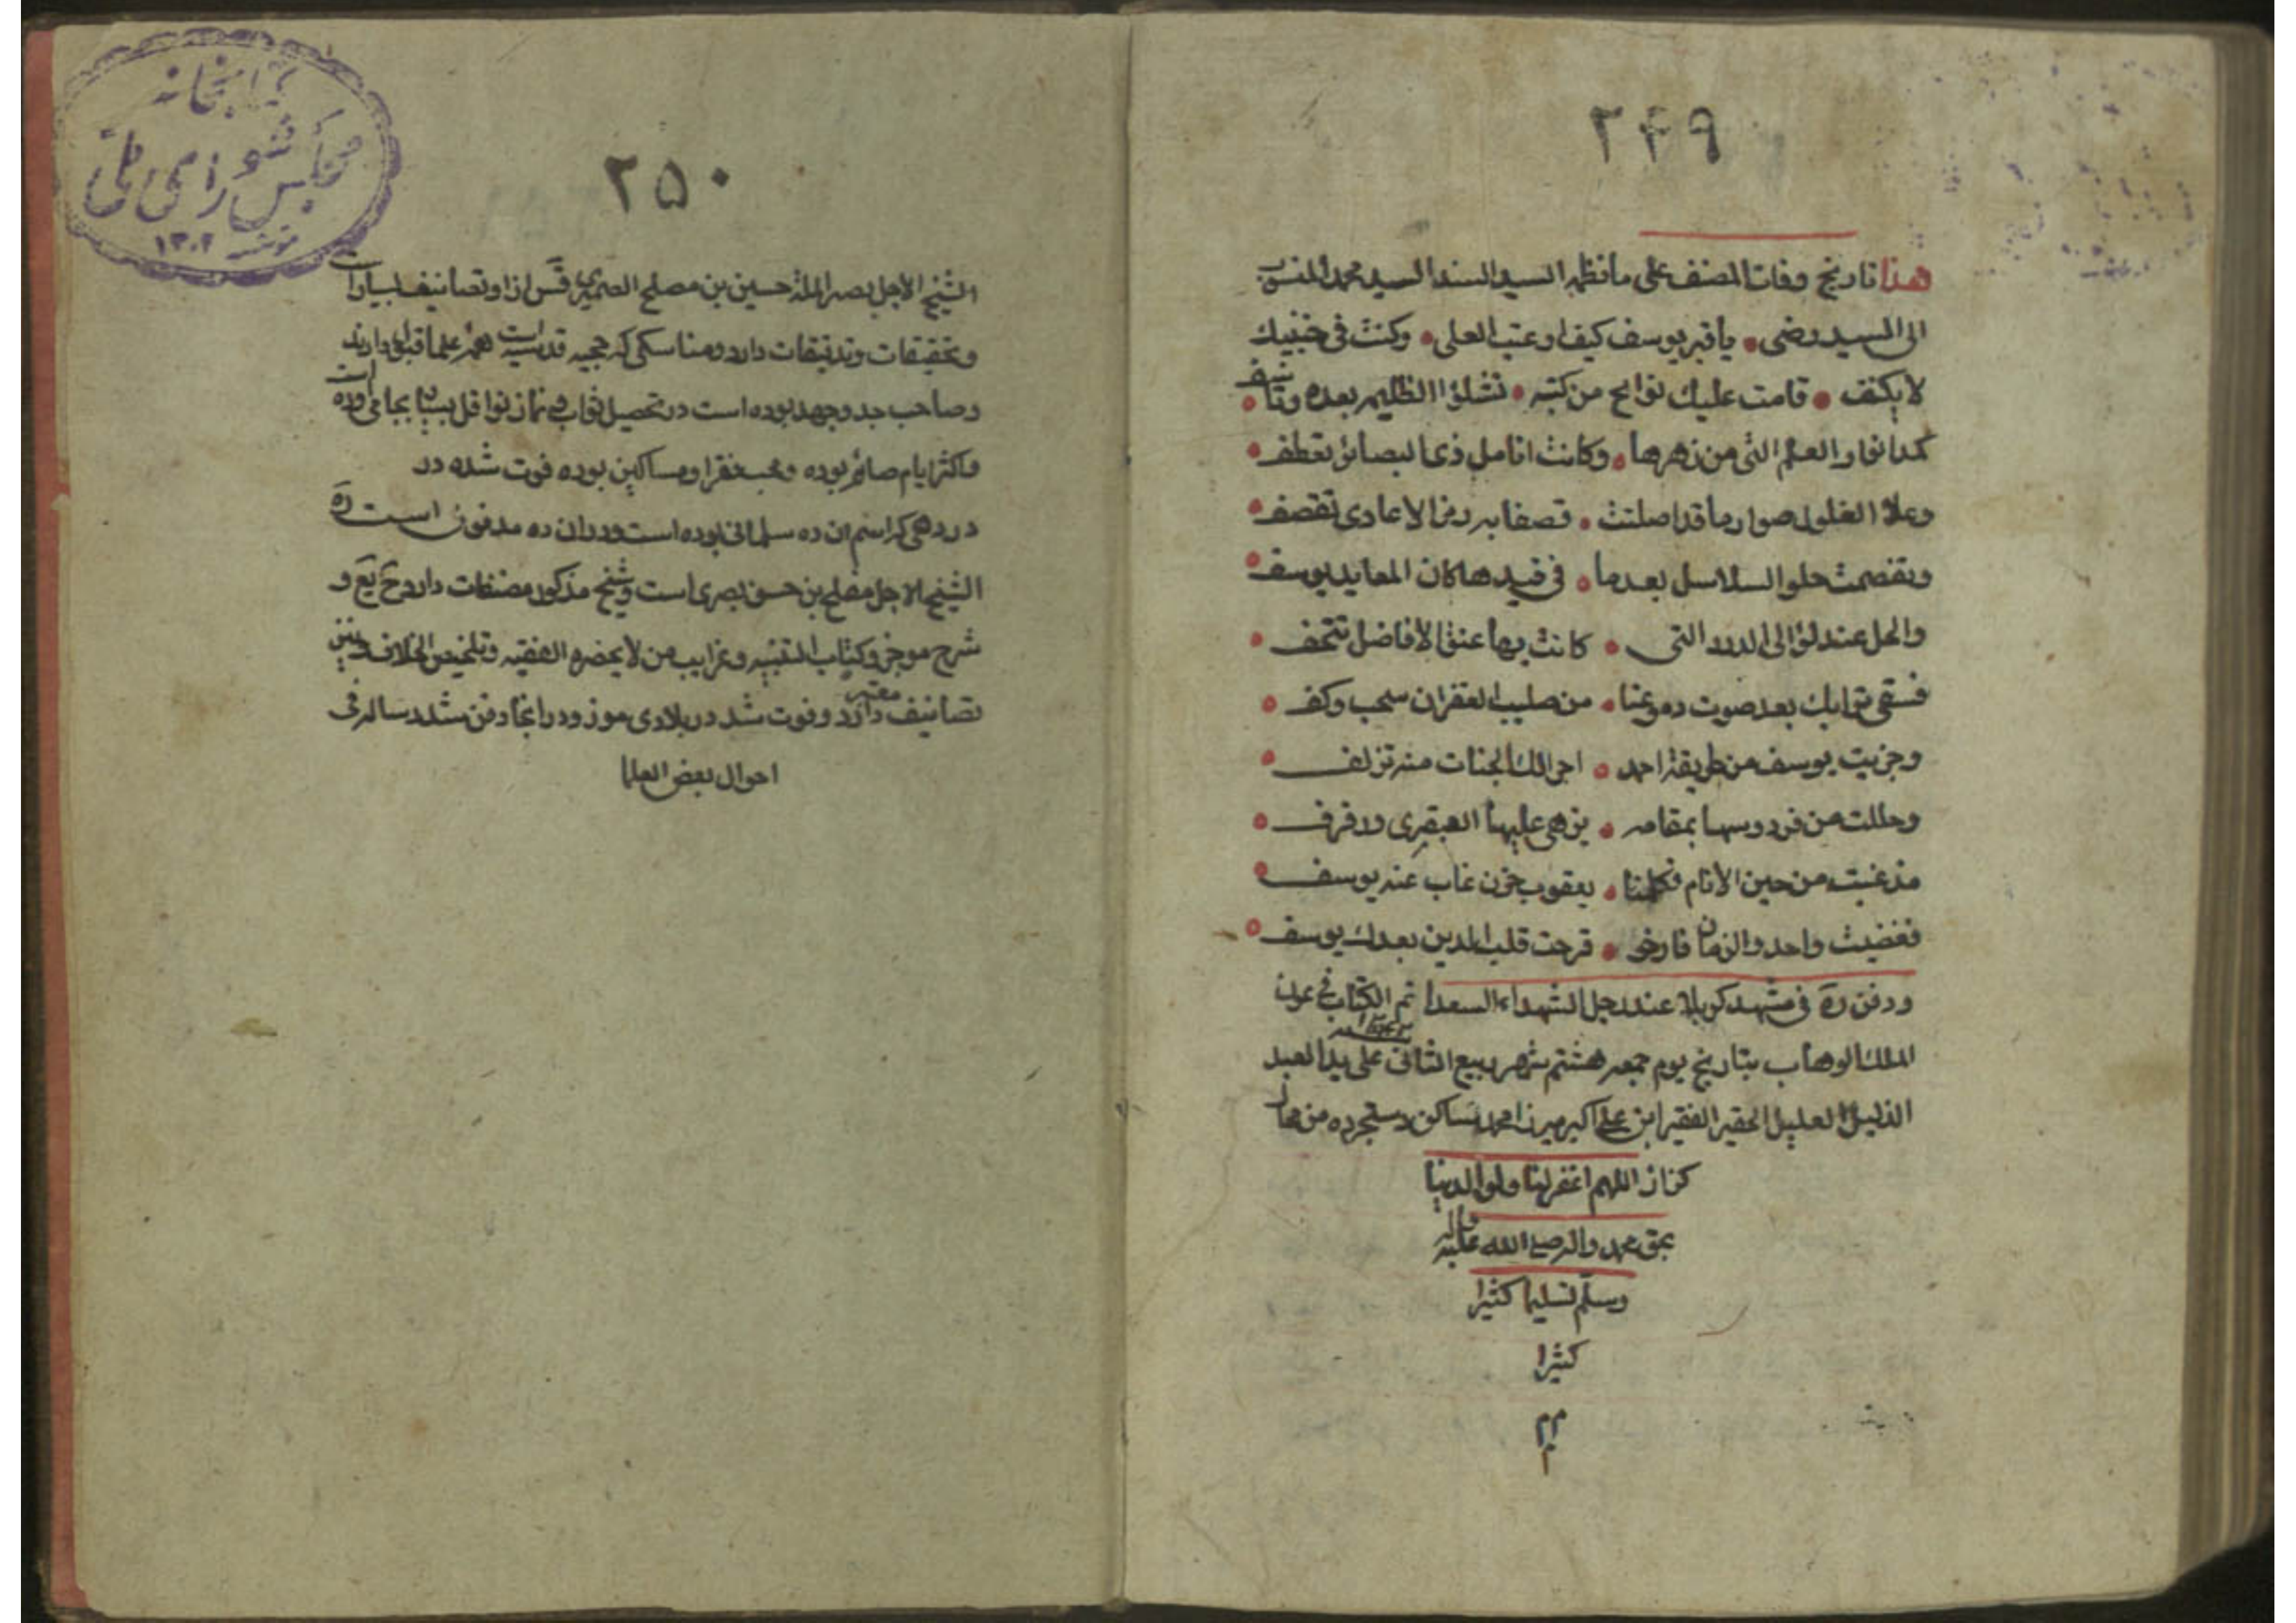 ۲۴۹
هذا تاريخ وفات المصنف على ما نظمه السيد السند السيد محمد المنسوب
الى السيد رضى يا قبر يوسف كيف اوعبت العلى وكنت فى جنبيك
لا يكنف قامت عليك نوايح من كتبه تشلوا الظليم بعده وتأسف
كمدا نوار العلم التى من زهرها وكانت انامل ذى البصائر تعطف
وعلا الفلول صوارما قد اصلتت قصفا به دمز الاعادى تقصف
وتفصمت حلو السلاسل بعدما فى قيدها كان المعايد يوسف
والحل عند لؤالى الدرر التى كانت بها عنق الافاضل تتحف
فسقى ترابك بعد صوت دموعنا من صليب الغفران سحب وكف
وجزيت يوسف من طريقة احمد اجرا لك الجنات منه تزلف
وحللت من فردوسها بمقامه يزهى عليها العبقرى ورفرف
مذ غبت من حين الانام فكلنا يعقوب حزن غاب عنه يوسف
فغضيت واحد والزمان فارخى قرحت قلب الدين بعدك يوسف
ودفن ره فى مشهد كربلا عند رجل الشهداء السعدا تم الكتاب فى عون
الملك الوهاب بتاريخ يوم جمعه هشتم شهر ربيع الثانى على يد العبد
الذليل العليل الحقير الفقير ابن على اكبر ميرزا محمد ساكن دستجرده من محال
كزاز اللهم اغفر لنا ولوالدينا
بحق محمد واله صلى الله عليه واله
وسلم تسليما كثيرا
كثيرا
كتابخانه
مجلس شوراى ملى
۱۳۰۲
۲۵۰
الشيخ الاجل نصر الملة حسين بن مصلح الصميرى قس از او تصانيف بسيار است
و تحقيقات و تدقيقات دارد و مناسكى كه حجيه قدسيه است همه علما قبول دارند
و صاحب جد و جهد بوده است در تحصيل ثواب و نماز نوافل بسيار بجا مى اورده است
و اكثر ايام صائم بوده و محب فقرا و مساكين بوده فوت شده در
در دهى كه اسم ان ده سلمانى بوده است و در ان ده مدفون است ره
الشيخ الاجل مفلح بن حسن بصرى است و شيخ مذكور مصنفات دارد خ يع و
شرح موجز و كتاب التنبيه و غرايب من لا يحضره الفقيه و تلخيص الخلاف
تصانيف معتبر دارد و فوت شد در بلادى موز و در انجا دفن شد رساله فى
احوال بعض العلما